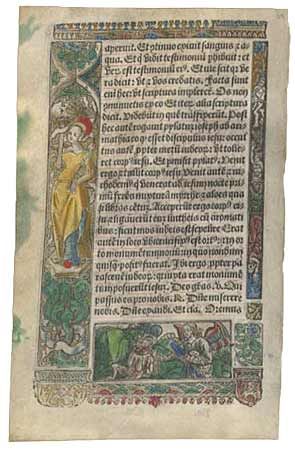 aperuit. Et continuo exivit sanguis z a
qua. Et q vidit testimoniū phibuit: et
verū est testimoniū ei⁹. Et ille scit q; ve
ra dicit: ut z vos credatis. Facta sunt
eni hec ut scriptura impleret. Os non
cōminuetis ex eo Et iterū alia scriptura
dicit. Videbūt in quē trāsfixerūt. Post
hec autē rogauit pylatū ioseph ab ari
mathia eo q esset discipulus iesu: occul
tus autē ppter metū iudeorū: ut tolle
ret corp⁹ iesu. Et pmisit pylat⁹. Venit
ergo z tulit corp⁹ iesu. Venit autē z ni
chodem⁹ q venerat ad iesum nocte pri
mū ferēs mixturā mirre z aloes quasi
libras centū. Acceperūt ergo corp⁹ iesu
z ligauerūt eū in lintheis cū aromati
bus: sicut mos iudeis est sepelire Erat
autē in loco ubi crucifix⁹ est ort⁹: z in or
to monumentū nouum in quo nondum
quisq; posit⁹ fuerat. Ibi ergo ppter pa
rasceuē iudeorū: quia iuxta erat monumē
tū posuerūt iesum. Deo grās. v. Qui
passus es pro nobis. R. Dn̄e miserere
nobis. Dn̄e exaudi. Et cla. Oremus